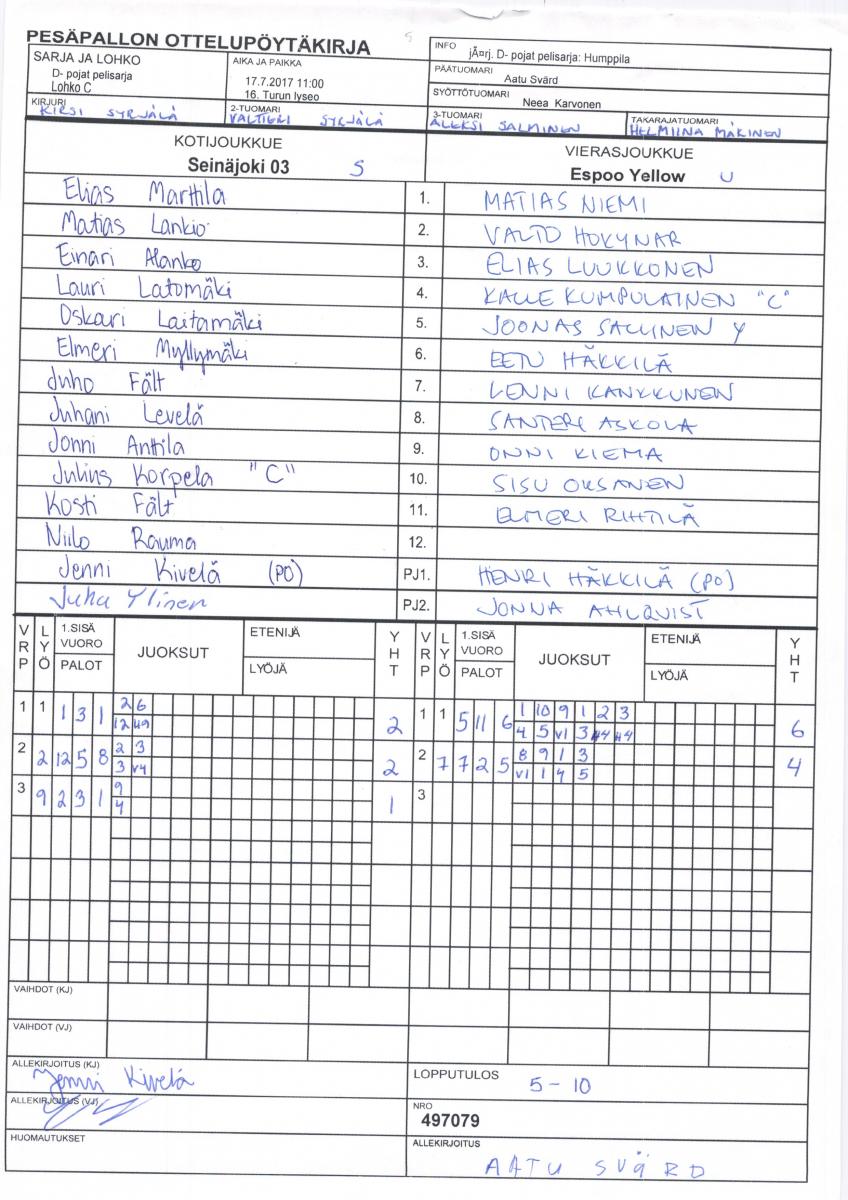 PESÄPALLON OTTELUPÖYTÄKIRJA
SARJA JA LOHKO
D- pojat pelisarja
Lohko C
AIKA JA PAIKKA
17.7.2017 11:00
16. Turun lyseo
INFO
jÃ¤rj. D- pojat pelisarja: Humppila
PÄÄTUOMARI
Aatu Svärd
SYÖTTÖTUOMARI
Neea Karvonen
KIRJURI
KIRSI SYRJÄLÄ
2-TUOMARI
VALTTERI SYRJÄLÄ
3-TUOMARI
ALEKSI SALMINEN
TAKARAJATUOMARI
HELMIINA MÄKINEN
KOTIJOUKKUE
Seinäjoki 03 S
VIERASJOUKKUE
Espoo Yellow U
Elias Marttila 1. MATIAS NIEMI
Matias Lankio 2. VALTO HOKYNAR
Einari Alanko 3. ELIAS LUUKKONEN
Lauri Latomäki 4. KALLE KUMPULAINEN "C"
Oskari Laitamäki 5. JOONAS SALLINEN Y
Elmeri Myllymäki 6. EETU HÄKKILÄ
Juho Fält 7. LENNI KANKKUNEN
Juhani Levelä 8. SANTERI ASKOLA
Jonni Anttila 9. ONNI KIEMA
Julius Korpela "C" 10. SISU OKSANEN
Kosti Fält 11. ELMERI RIHTILÄ
Niilo Rauma 12.
Jenni Kivelä (PO) PJ1. HENRI HÄKKILÄ (PO)
Juha Ylinen PJ2. JONNA AHLQVIST
VRP LYÖ 1.SISÄ VUORO PALOT JUOKSUT ETENIJÄ LYÖJÄ YHT VRP LYÖ 1.SISÄ VUORO PALOT JUOKSUT ETENIJÄ LYÖJÄ YHT
1 1 1 3 1 2 6 2 1 1 5 11 6 1 10 9 1 2 3 6
12 4 5 V1 3
2 2 12 5 8 2 3 2 2 7 7 2 5 8 9 1 3 4
3 V4 V1 1 4 5
3 9 2 3 1 9 1 3
4
VAIHDOT (KJ)
VAIHDOT (VJ)
ALLEKIRJOITUS (KJ)
Jenni Kivelä
ALLEKIRJOITUS (VJ)
HUOMAUTUKSET
LOPPUTULOS 5-10
NRO
497079
ALLEKIRJOITUS
AATU SVÄRD